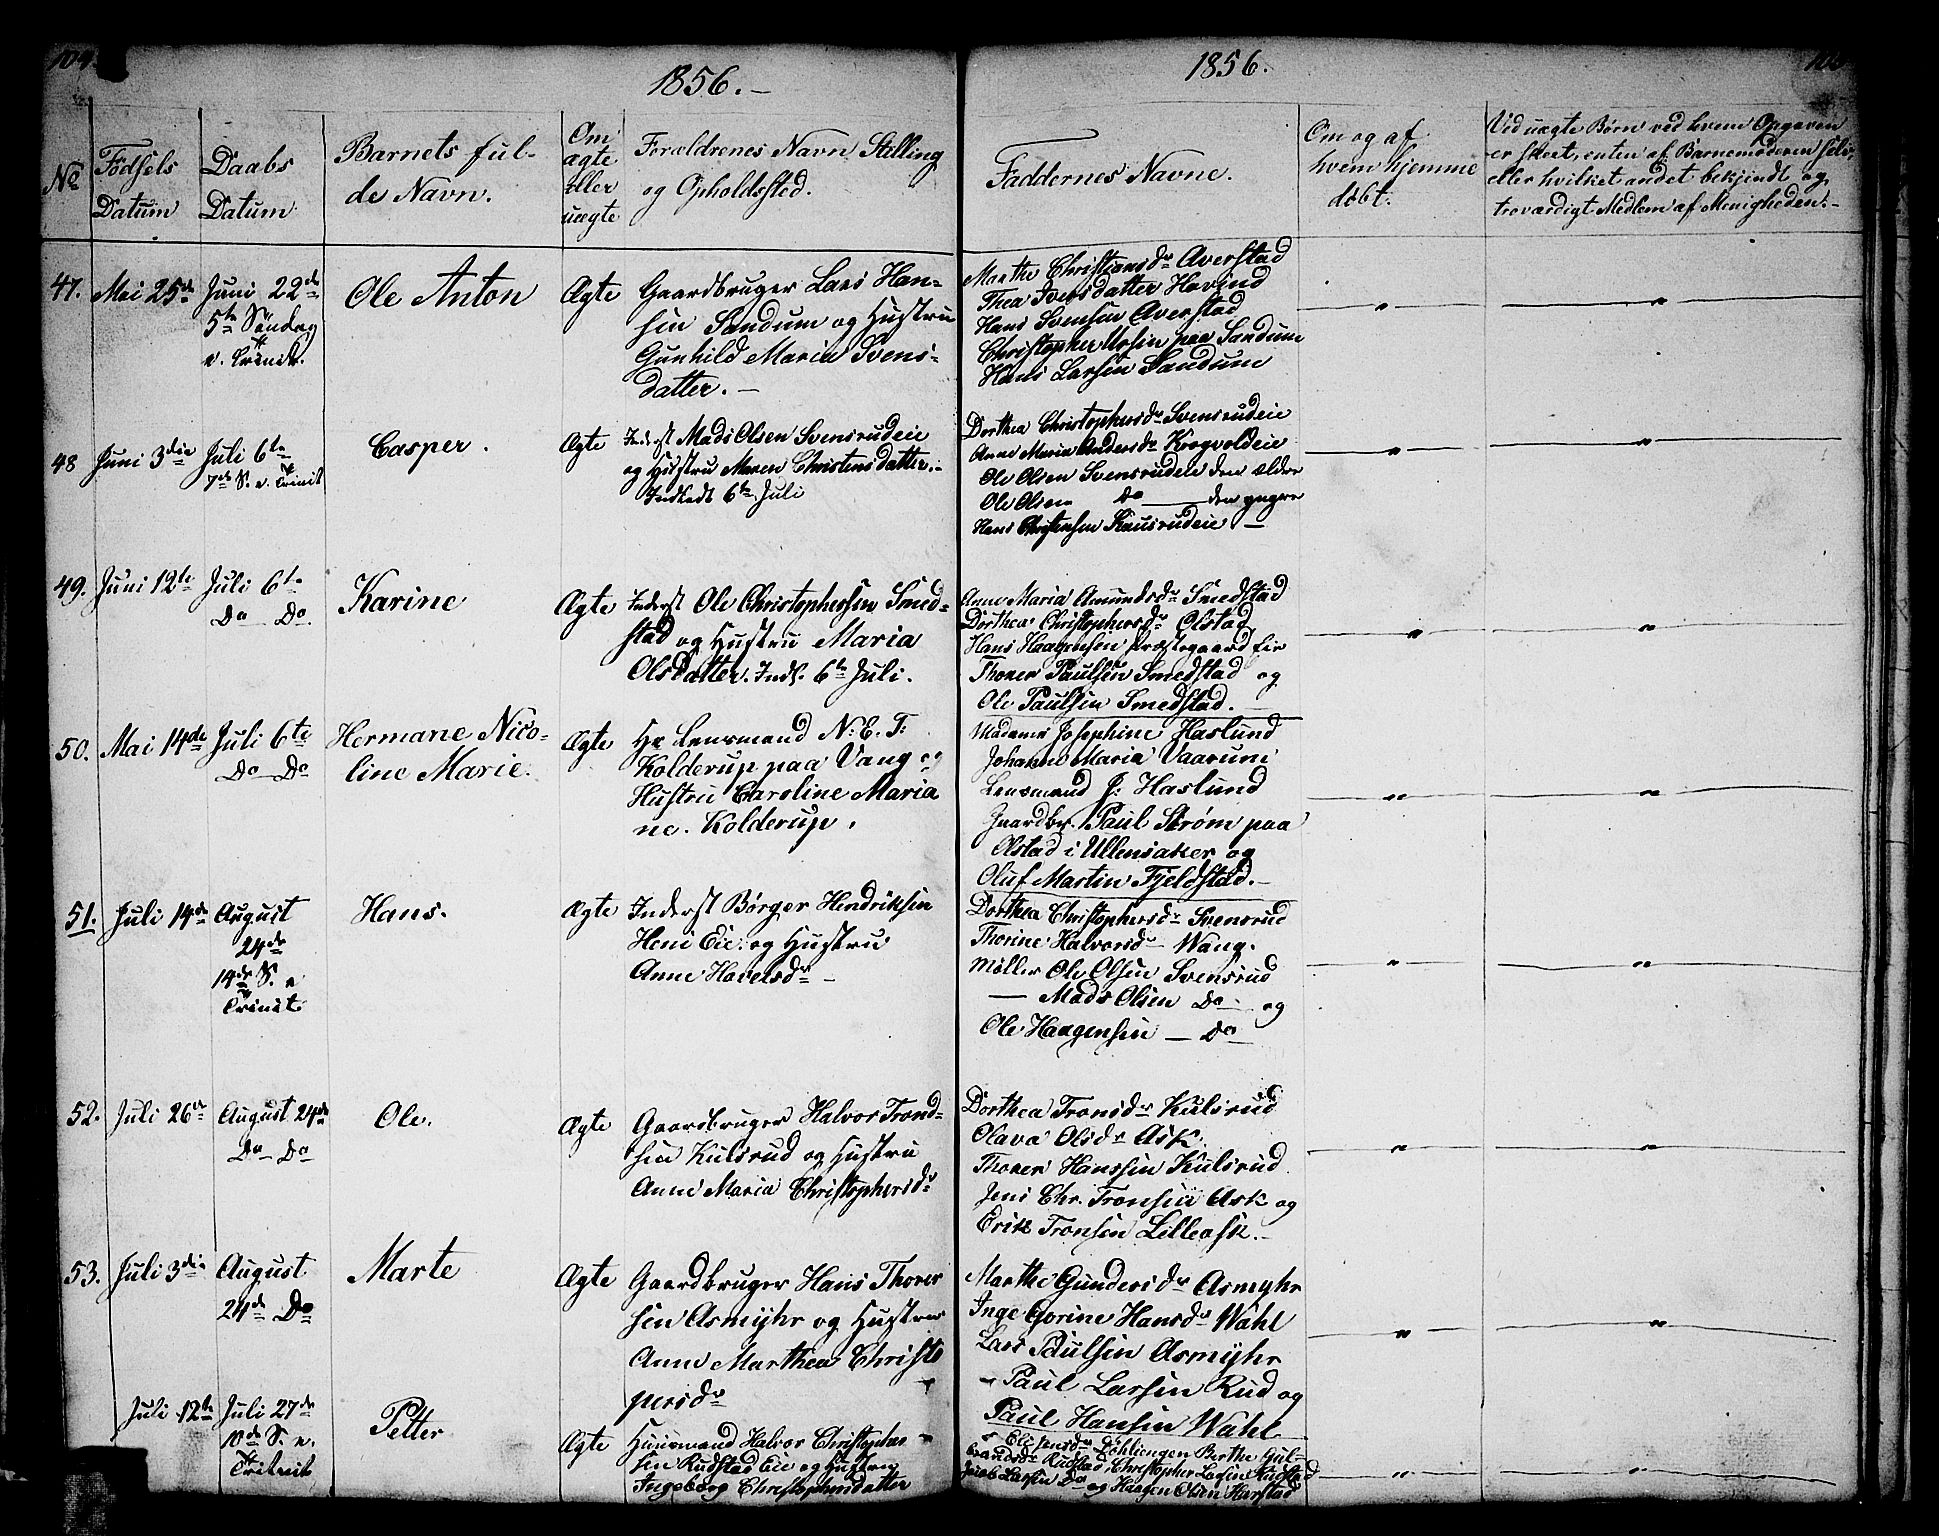 104
1856.
No
Födsels Datum
Daabs Datum
Barnets ful-
de Navn.
Om ægte eller uægte
Forældrenes Navn Stilling
og Opholdssted.
47.
Mai 25de
Juni 22de
5te Söndag
e. Trinit.
Ole Anton
Ægte
Gaardbruger Lars Han-
sen Sandum og Hustru
Gunhild Maria Svens-
datter. —
48
Juni 3die
Juli 6te
7de S. e. Trinit
Casper.
Ægte
Inderst Mads Olsen Svensrudeie
og Hustru Maren Christensdatter.
Indledt 6te Juli
49.
Juni 12te
Juli 6te
Do Do
Karine
Ægte
Inderst Ole Christophersen Smed-
stad og Hustru Maria
Olsdatter. Indl. 6te Juli.
50.
Mai 14de
Juli 6te
Do Do
Hermane Nico-
line Marie.
Ægte
Hr Lensmand N: E. T:
Kolderup paa Vang og
Hustru Caroline Maria
ne. Kolderup.
51.
Juli 14de
August
24de
14de S. e
Trinit
Hans.
Ægte
Inderst Börger Hendriksen
Heni Eie. og Hustru
Anne Havelsdr —
52.
Juli 26de
August 24de
Do Do
Ole.
Ægte
Gaardbruger Halvor Trond-
sen Kulsrud og Hustru
Anne Maria Christophersdr
53.
Juli 3die
August
24de Do
Marte
Ægte
Gaardbruger Hans Thorer
sen Asmyhr og Hustru
Anne Marthea Christo
persdr
Juli 12te
Juli 27de
10de S. e.
Trinit
Petter
Ægte
Huusmand Halvor Christopher
sen Rudstad Eie og Hustru
Ingeborg Christophersdatter
1856.
Faddernes Navne.
Om og af
hvem hjemme
døbt.
Ved uægte Børn ved hvem Opgaven
er skeet, enten af Barnemoderen selv,
eller hvilket andet bekjendt og
troværdigt Medlem af Menigheden.
Marthe Christiansdr Averstad
Thea Iversdatter Havind
Hans Svensen Averstad
Christopher paa Sandum
Hans Larsen Sandum
Dorthea Christophersdr Svensrudeie
Anne Maria Andersdr Krogvoldeie
Ole Olsen Svensrudeie den ældre
Ole Olsen Do — den yngre
Hans Christensen —
Anne Maria Amundsdr Smedstad
Dorthea Christophersdr Olstad
Hans Haagensen Præstegaard Eie
Thorer Paulsen Smedstad og
Ole Paulsen Smedstad.
Madame Josephine Haslund
Johanne Maria
Lensmand J: Haslund
Gaardbr. Paul Strøm paa
Olstad i Ullensaker og
Oluf Martin Fjeldstad. —
Dorthea Christophersdr Svensrud
Thorine Halvorsdr Wang.
Møller Ole Olsen Svensrud
— Mads Olsen Do og
Ole Haagensen — Do
Dorthea Tronsdr Kulsrud
Olava Olsdr Ask.
Thorer Hanssen Kulsrud
Jens Chr. Tronsen Ask og
Erik Tronsen Lilleask. —
Marthe Gundersdr Asmyhr
Inge Gorine Hansdr Wahl
Lars Paulsen Asmyhr
Paul Larsen Rud og
Paul Hansen Wahl
Berthe Gul-
brandsdr Rudstad, Christopher Larsen Rudstad
Jacob Larsen Do og Haagen Olsen Harstad